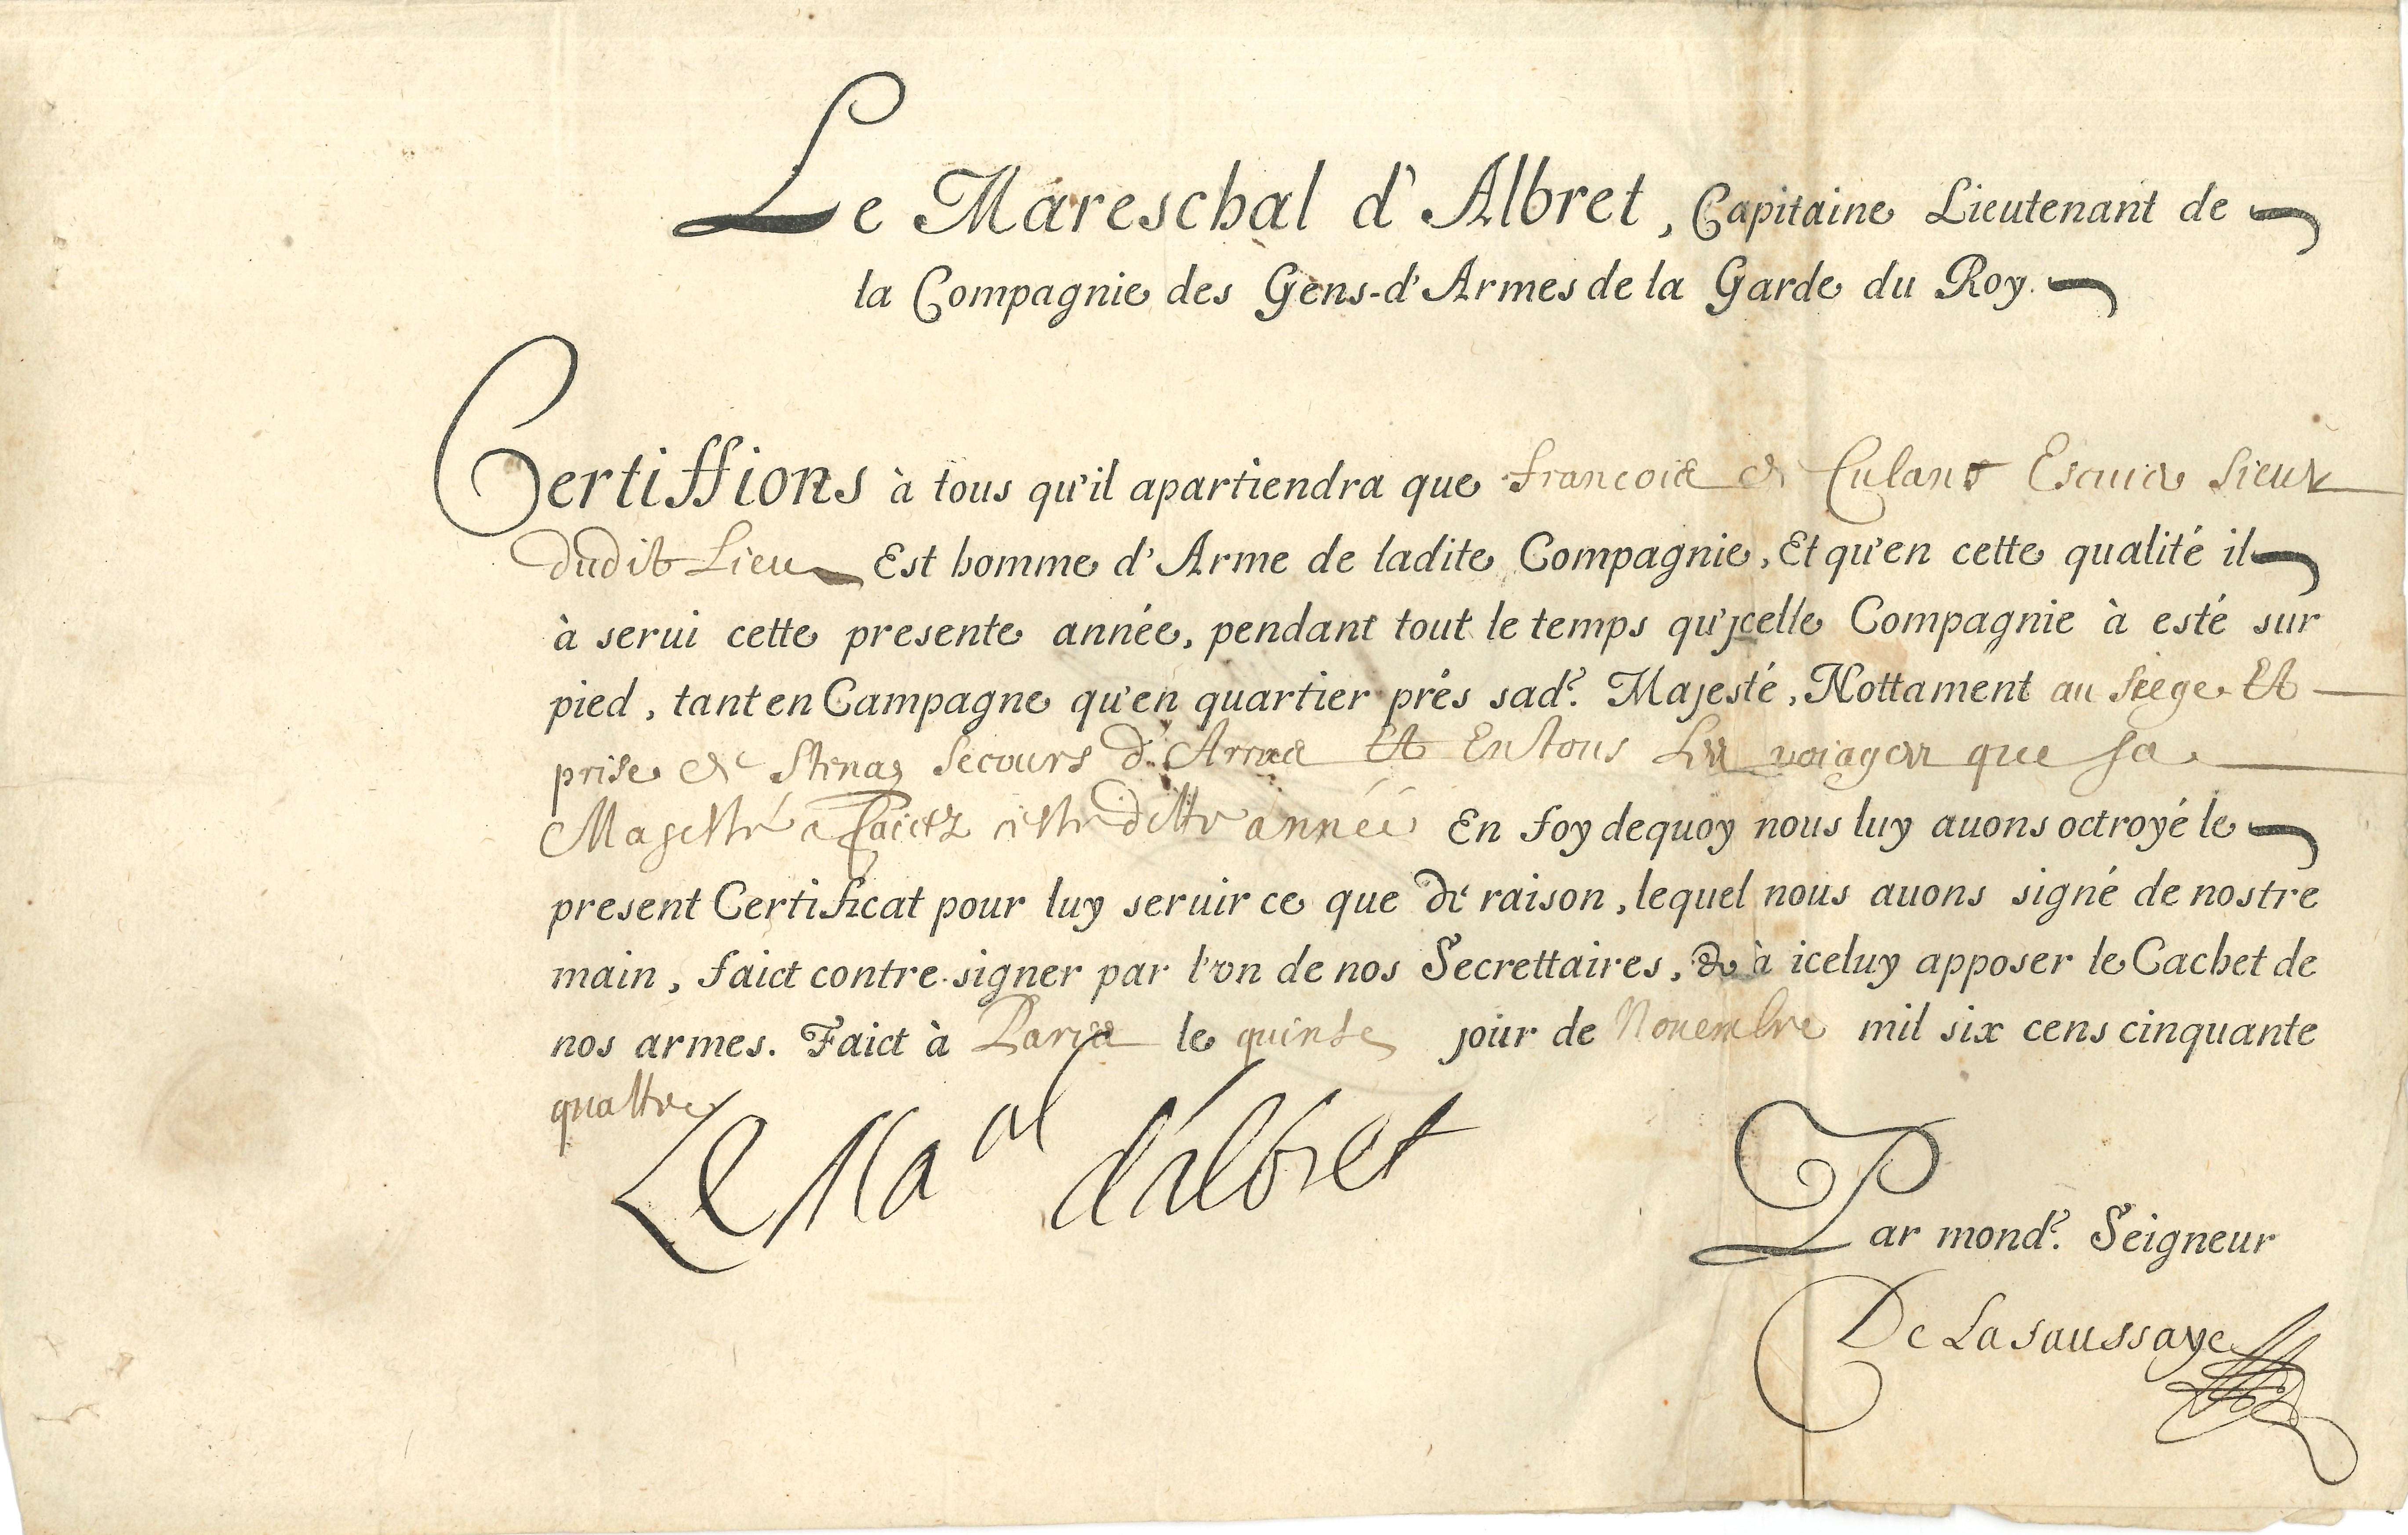 Le Mareschal d'Albret, Capitaine Lieutenant de
la Compagnie des Gens-d'Armes de la Garde du Roy.
Certiffions à tous qu'il apartiendra que francois de Culant Escuier Sieur
dudit Lieu Est homme d'Arme de ladite Compagnie, Et qu'en cette qualité il
à serui cette presente année, pendant tout le temps qu'jcelle Compagnie à esté sur
pied, tant en Campagne qu'en quartier prés sad.e Majesté, Nottament au siege Et
prise de Stenay Secours d'Arras Et En tous Les voiages que sa
Magesté a faictz cette ditte année En foy dequoy nous luy auons octroyé le
present Certificat pour luy seruir ce que de raison, lequel nous auons signé de nostre
main, faict contre-signer par l'vn de nos Secrettaires, & à iceluy apposer le Cachet de
nos armes. Faict à Paris le quinse jour de Nouembre mil six cens cinquante
quattre
Le Ma.al dalbret
Par mond.e Seigneur
De Lasaussaye